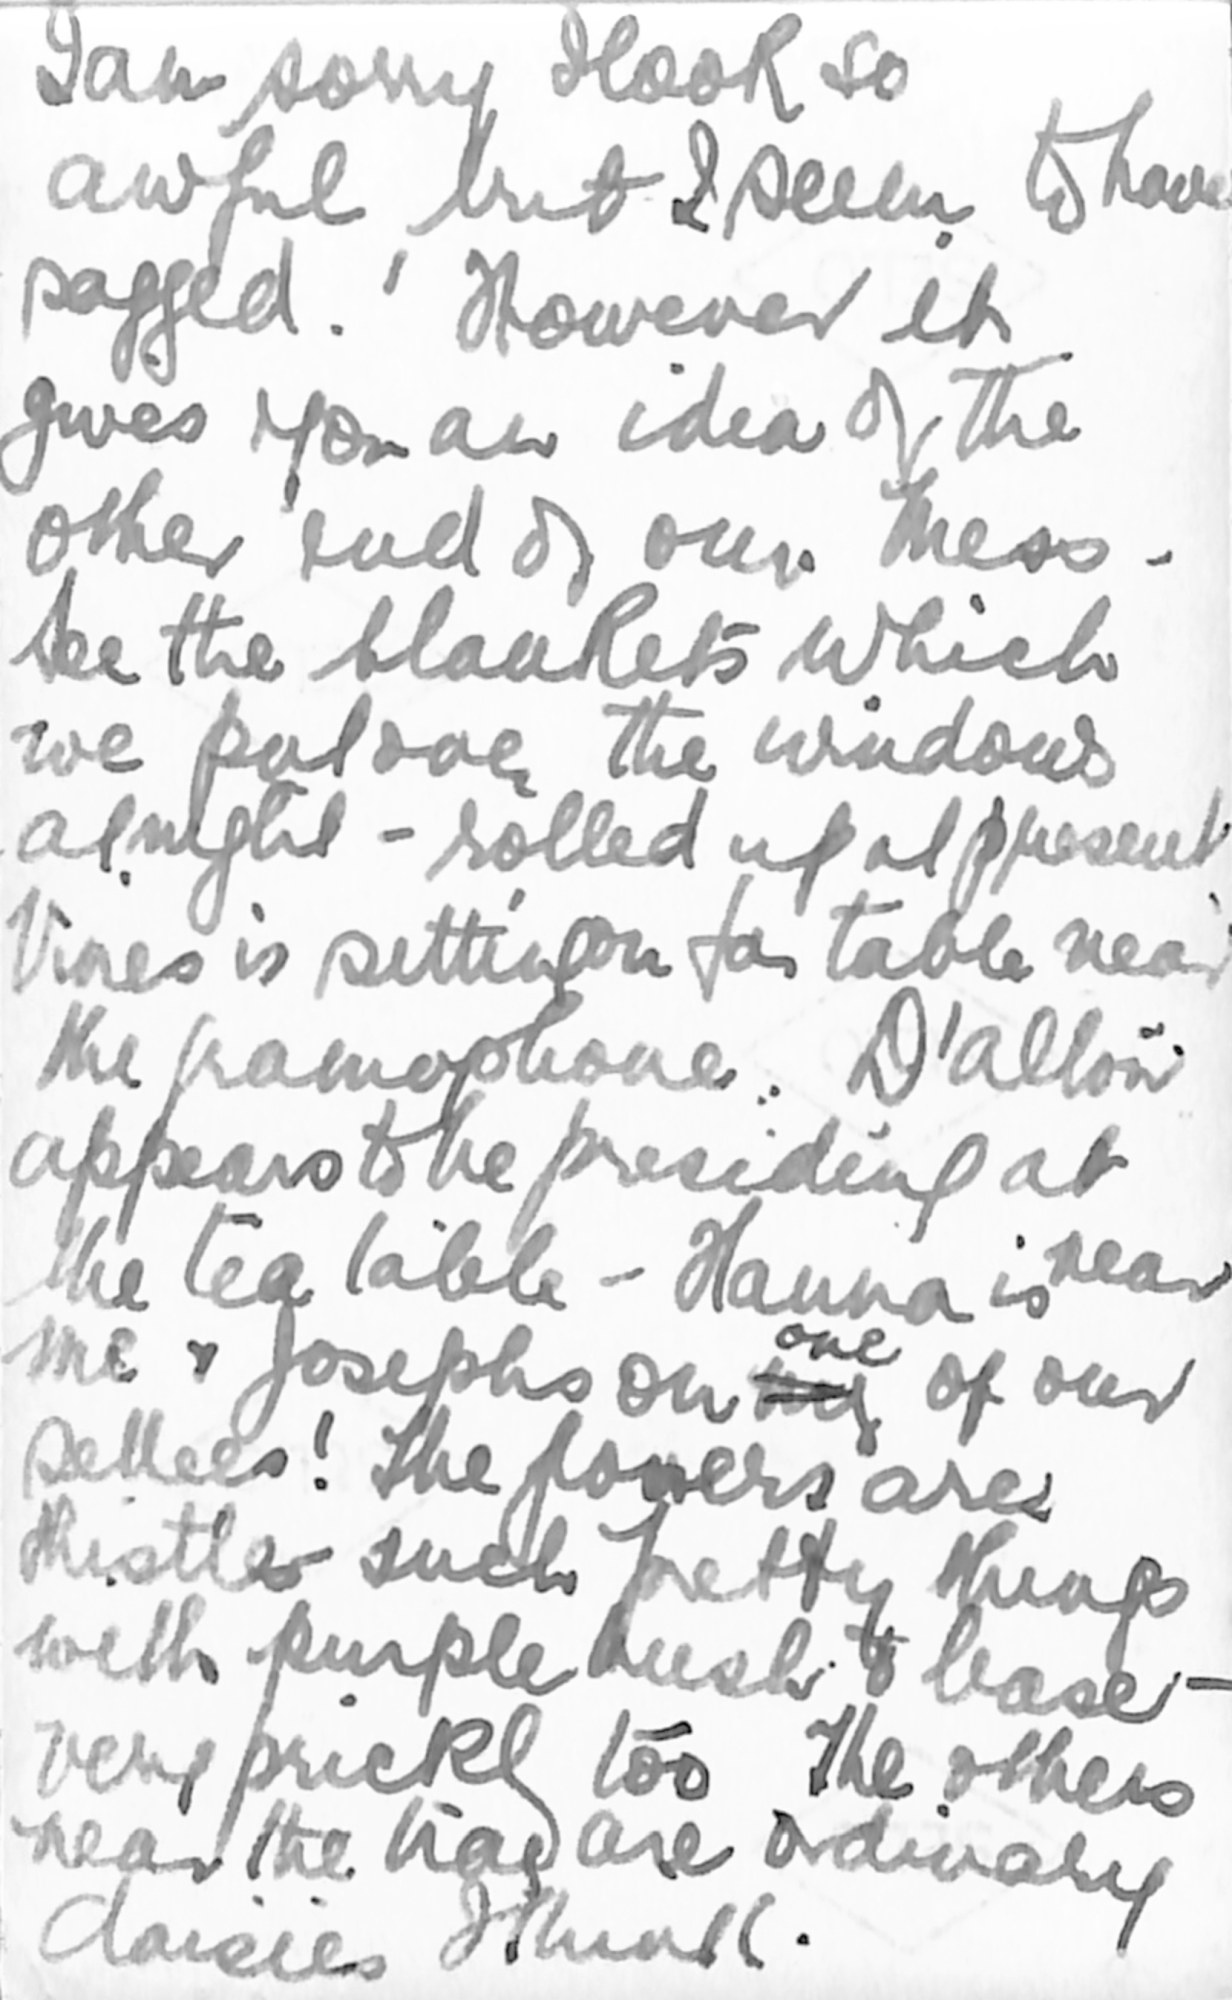 I am sorry I look so
awful but I seem to have
sagged.! However it
gives you an idea of the
other end of our Mess -
See the blankets which
we put over the windows
at night - rolled up at present
Vines is sitting on far table near
the gramophone. D'Alton
appears to be presiding at
the tea table - Hanna is near
me & Josephs on one of our
settees! The flowers are
thistles such pretty things
with purple bush & base -
very prickly too The others
near the tray are ordinary
daisies I think.